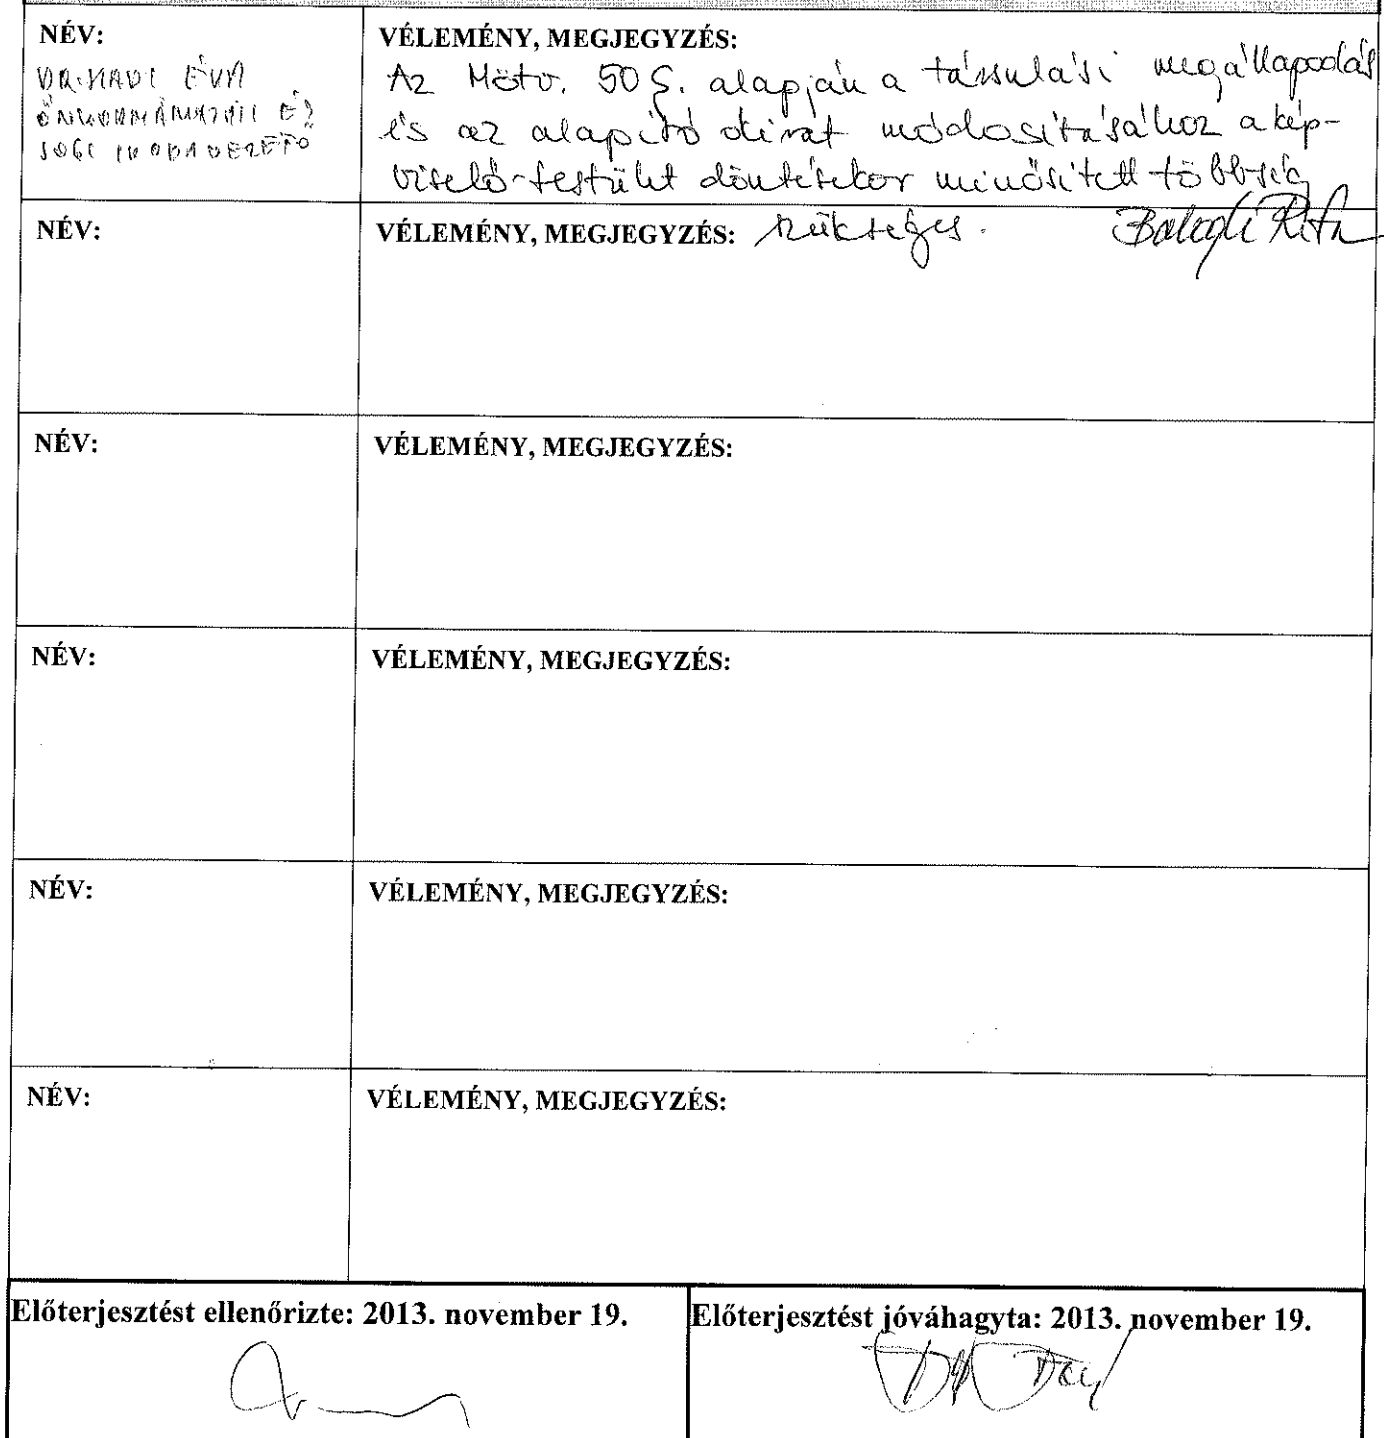 NÉV:
DR. HADI ÉVA
ÖNKORMÁNYZATI ÉS
JOGI IRODAVEZETŐ
VÉLEMÉNY, MEGJEGYZÉS:
Az Mötv. 50 §. alapján a társulási megállapodás
és az alapító okirat módosításához a kép-
viselő-testület döntésekor minősített többség
NÉV:
VÉLEMÉNY, MEGJEGYZÉS: szükséges. Balogh Rita
NÉV:
VÉLEMÉNY, MEGJEGYZÉS:
NÉV:
VÉLEMÉNY, MEGJEGYZÉS:
NÉV:
VÉLEMÉNY, MEGJEGYZÉS:
NÉV:
VÉLEMÉNY, MEGJEGYZÉS:
Előterjesztést ellenőrizte: 2013. november 19.
Előterjesztést jóváhagyta: 2013. november 19.